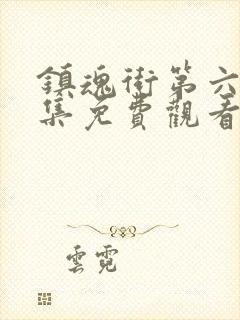 鎮魂街第六
集免費觀看
雲霓